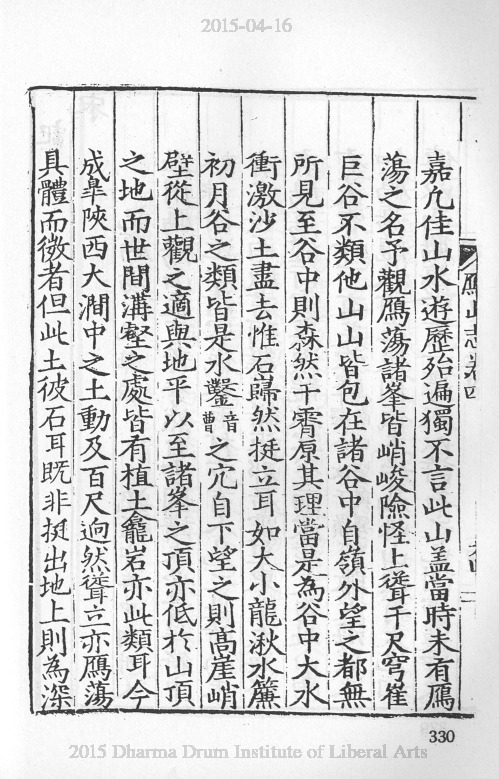 2015-04-16
鴈山志卷四
嘉凢佳山水遊歷殆遍獨不言此山盖當時未有鴈
蕩之名予觀鴈蕩諸峯皆峭峻險怪上聳千尺穹崔
巨谷不類他山山皆包在諸谷中自嶺外望之都無
所見至谷中則森然干霄原其理當是為谷中大水
衝激沙土盡去惟石巋然挺立耳如大小龍湫水簾
初月谷之類皆是水鑿音曹之穴自下望之則髙崖峭
壁從上觀之適與地平以至諸峯之頂亦低於山頂
之地而世間溝壑之處皆有植土龕岩亦此類耳今
成臯陜西大澗中之土動及百尺逈然聳立亦鴈蕩
具體而微者但此土彼石耳既非挺出地上則為深
330
2015 Dharma Drum Institute of Liberal Arts